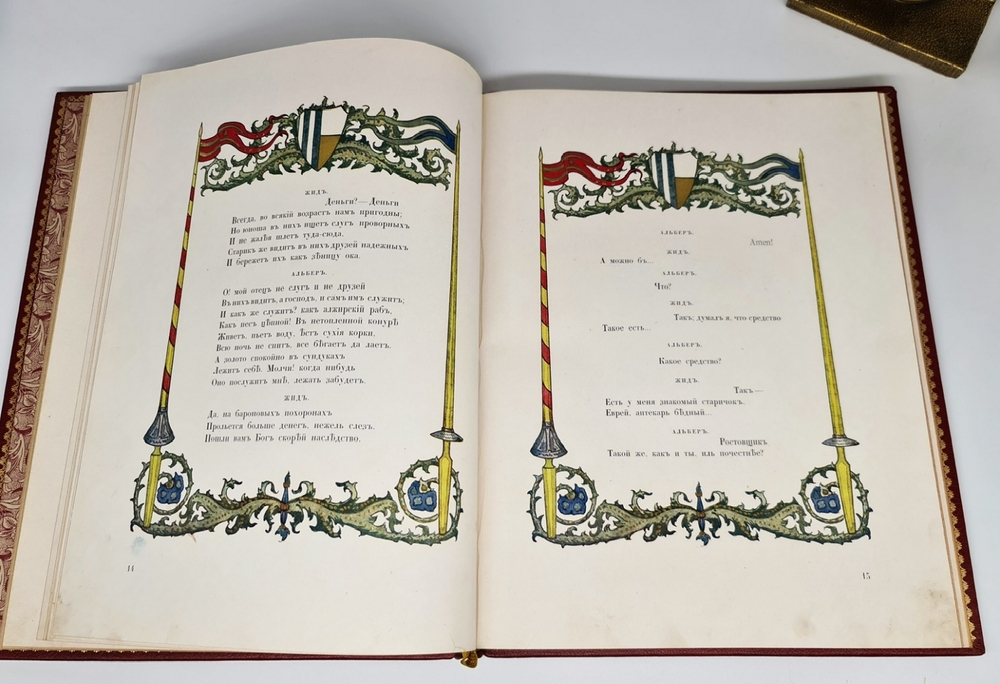 ЖИДЪ.
Деньги? — Деньги
Всегда, во всякій возрастъ намъ пригодны;
Но юноша въ нихъ ищетъ слугъ проворныхъ
И не жалѣя шлетъ туда-сюда.
Старикъ же видитъ въ нихъ друзей надежныхъ
И бережетъ ихъ какъ зѣницу ока.
АЛЬБЕРЪ.
О! мой отецъ не слугъ и не друзей
Въ нихъ видитъ, а господъ, и самъ имъ служитъ;
И какъ же служитъ? какъ алжирскій рабъ,
Какъ песъ цѣпной! Въ нетопленной конурѣ
Живетъ, пьетъ воду, ѣстъ сухія корки,
Всю ночь не спитъ, все бѣгаетъ да лаетъ.
А золото спокойно въ сундукахъ
Лежитъ себѣ. Молчи! когда нибудь
Оно послужитъ мнѣ, лежать забудетъ.
ЖИДЪ.
Да, на бароновыхъ похоронахъ
Прольется больше денегъ, нежель слезъ.
Пошли вамъ Богъ скорѣй наслѣдство.
14
АЛЬБЕРЪ.
Amen!
ЖИДЪ.
А можно бъ...
АЛЬБЕРЪ.
Что?
ЖИДЪ.
Такъ, думалъ я, что средство
Такое есть...
АЛЬБЕРЪ.
Какое средство?
ЖИДЪ.
Такъ —
Есть у меня знакомый старичокъ,
Еврей, аптекарь бѣдный...
АЛЬБЕРЪ.
Ростовщикъ
Такой же, какъ и ты, иль почестнѣе?
15